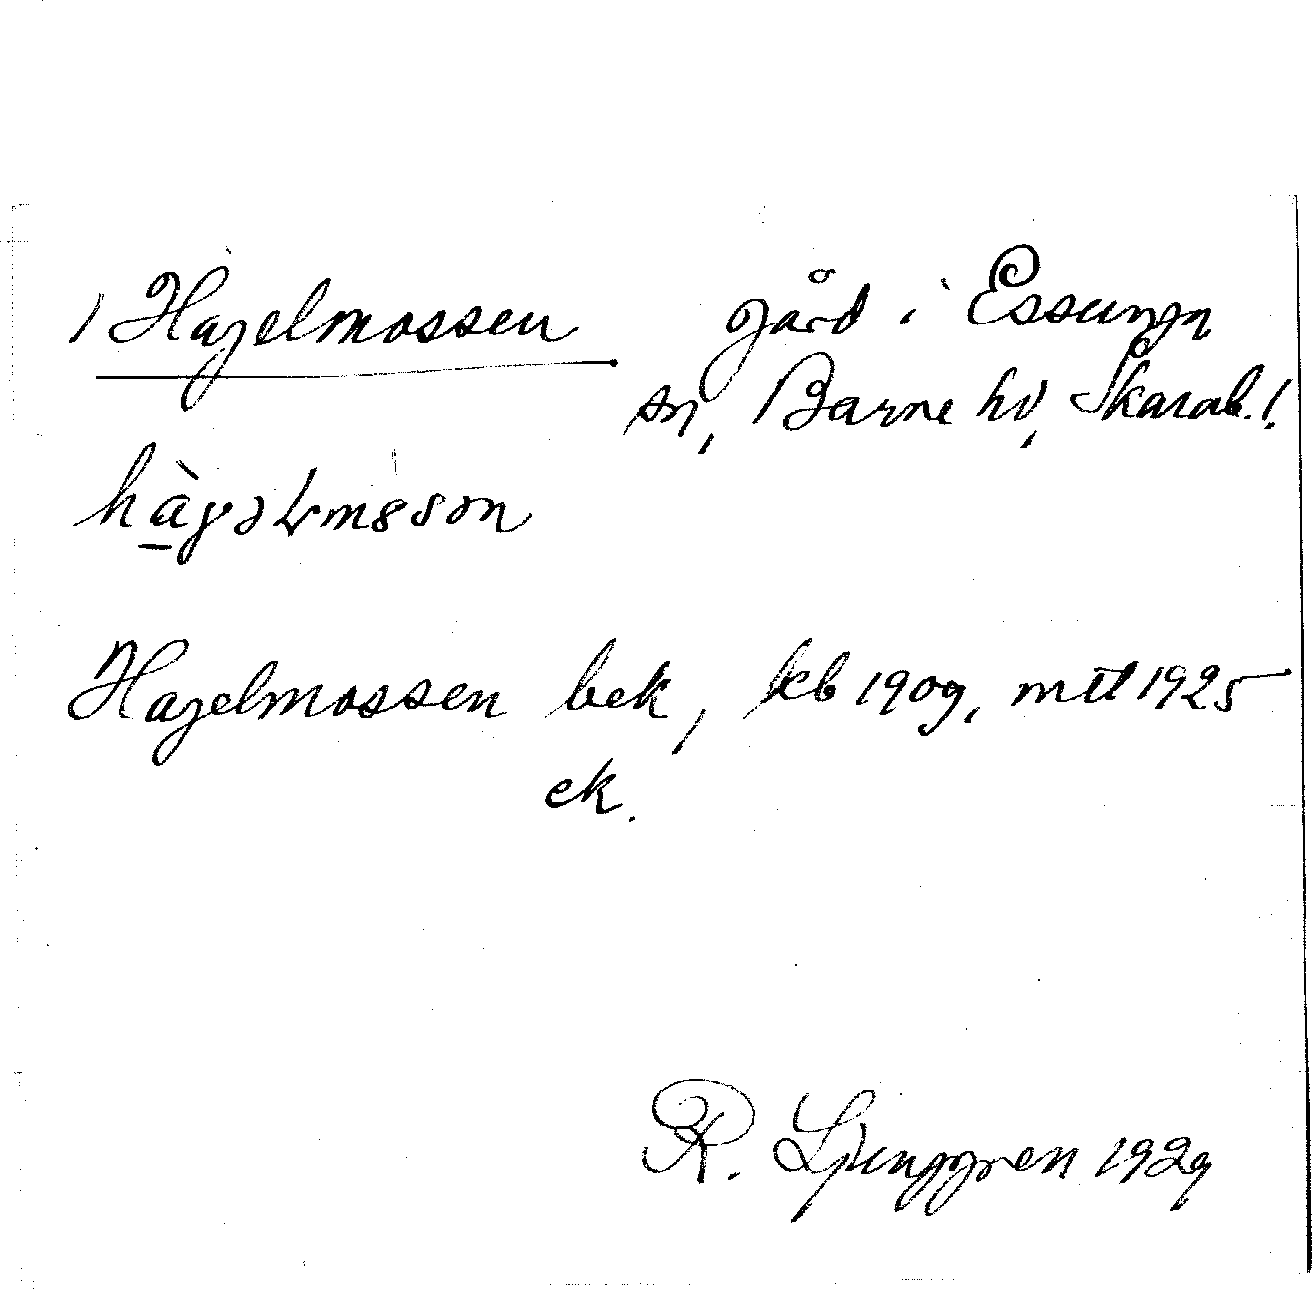 1 Hagelmossen gård i Essunga
sn, Barne hd, Skarab. l.
Hagelmossen bek, kb 1909, mtl 1925
ek.
R. Ljunggren 1929